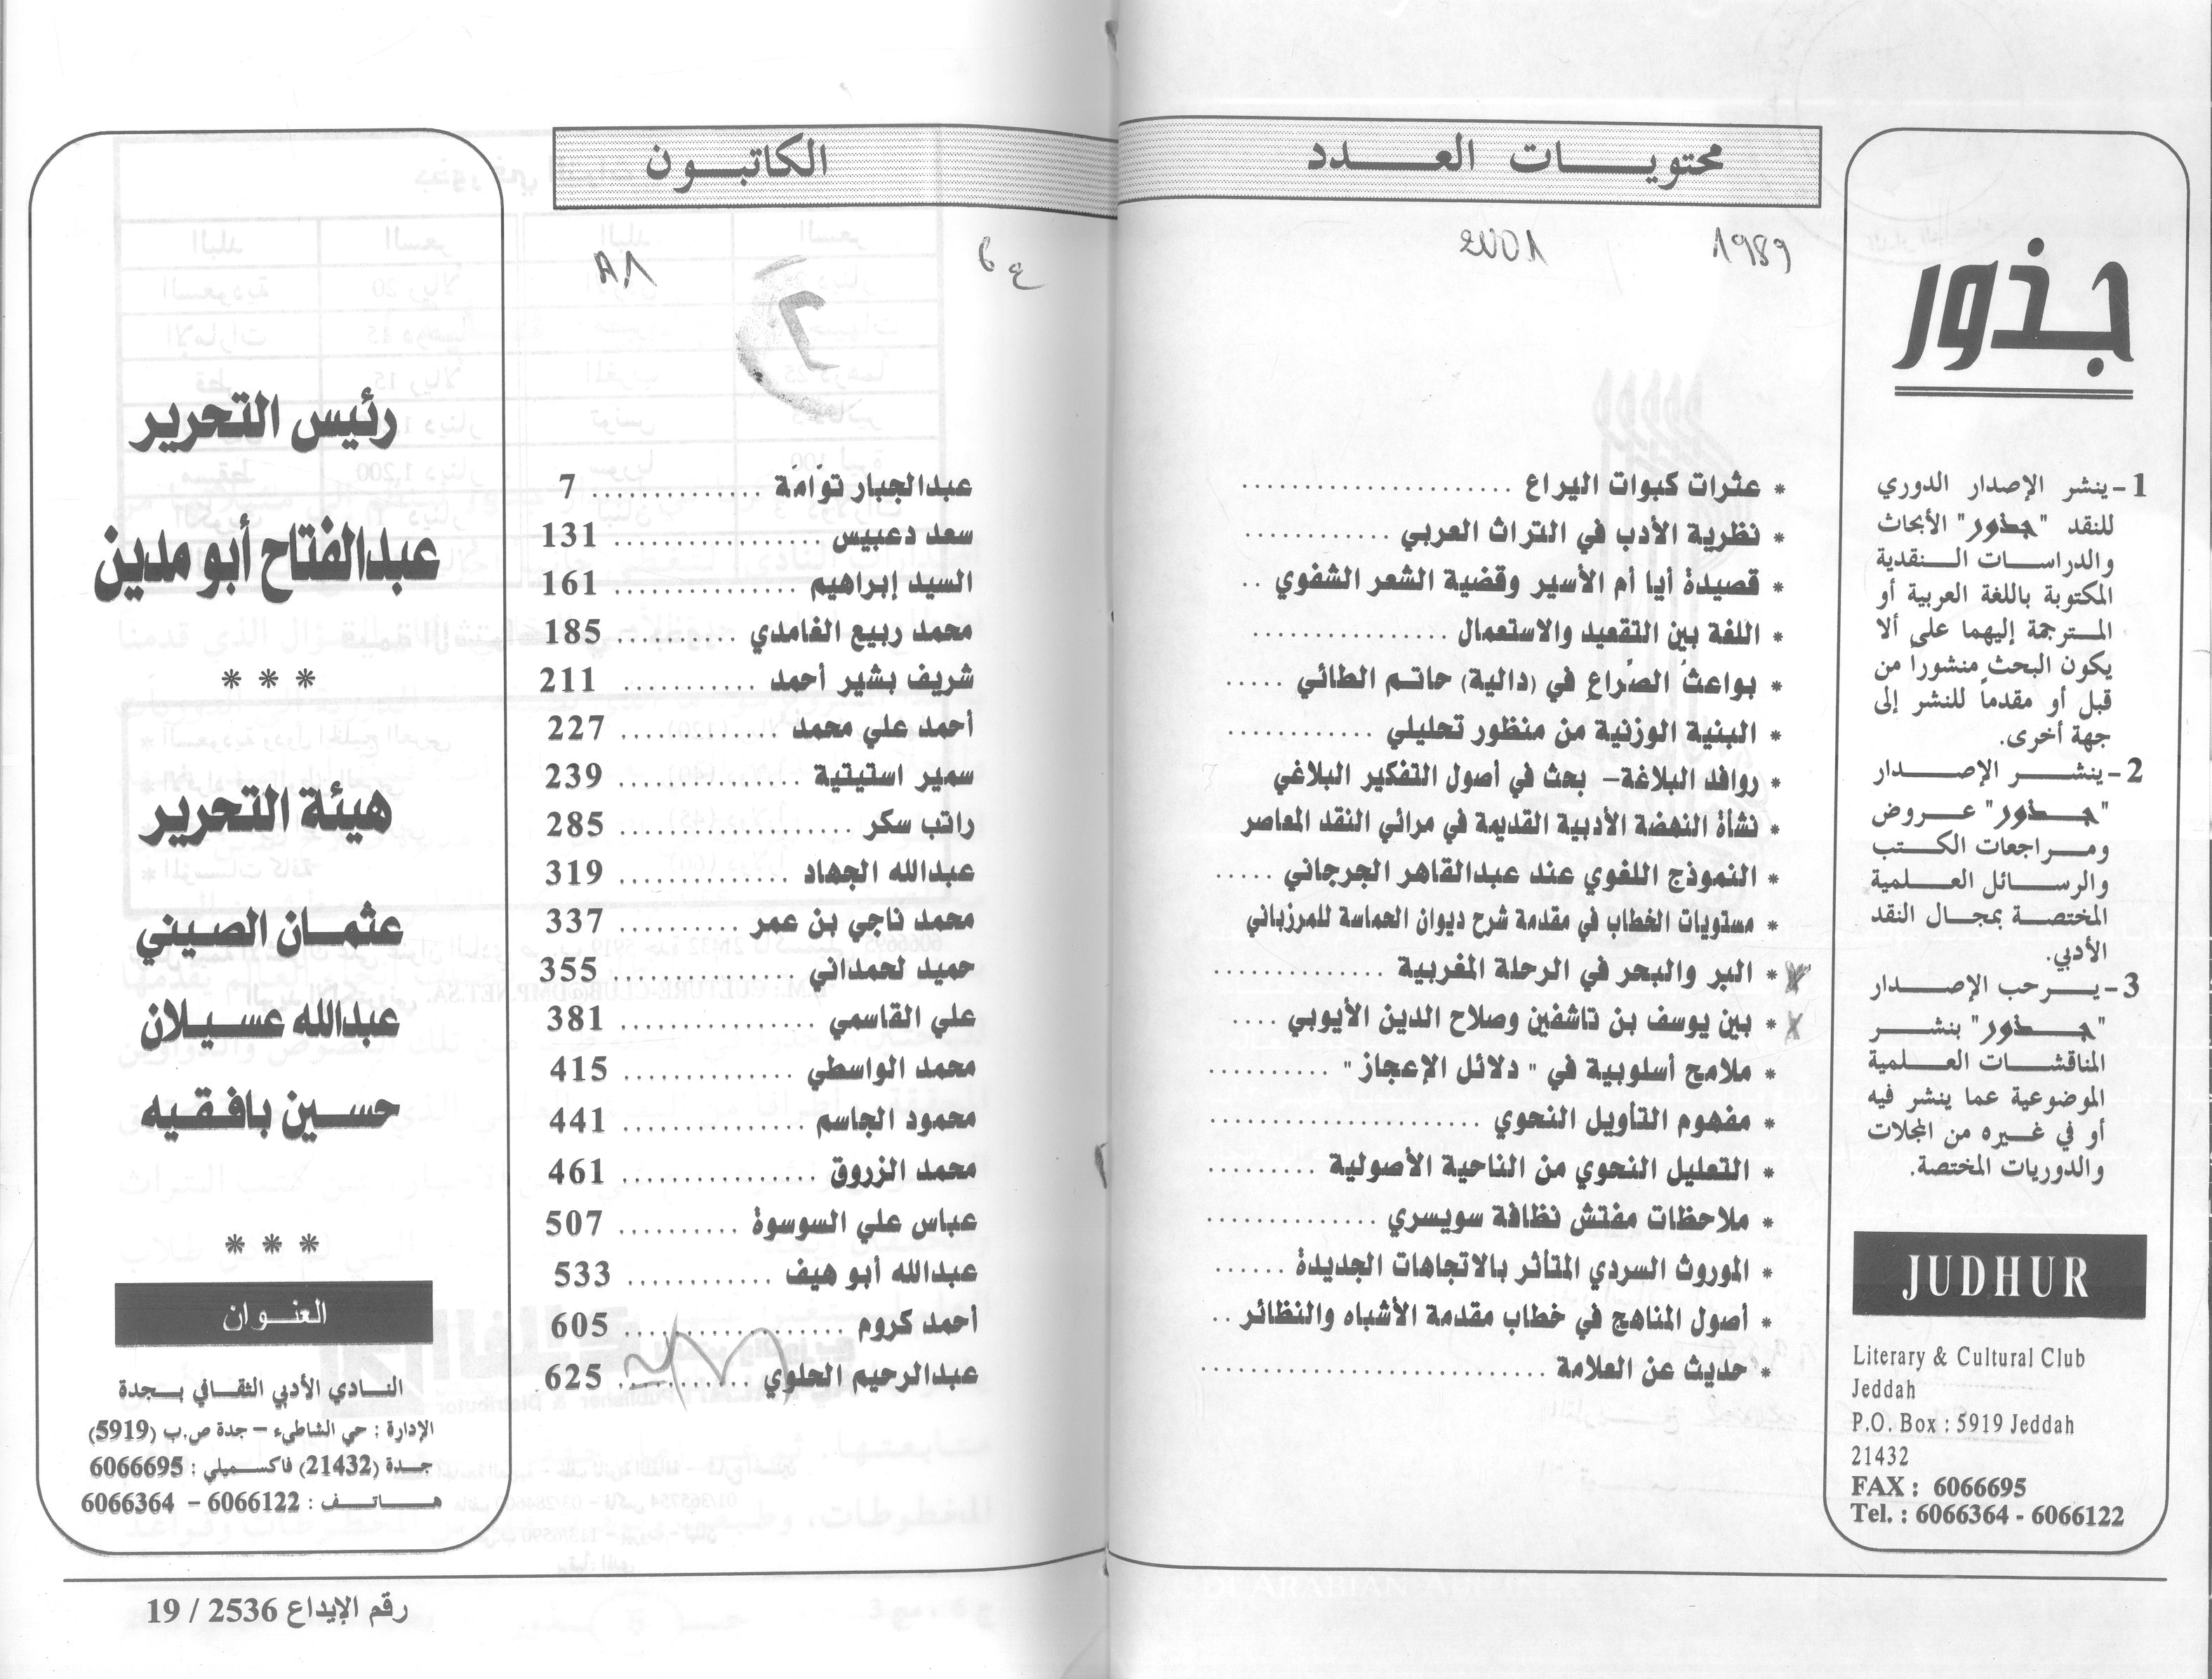 جذور
1- ينشر الإصدار الدوري
للنقد "جذور" الأبحاث
والدراسات النقدية
المكتوبة باللغة العربية أو
المترجمة إليهما على ألا
يكون البحث منشوراً من
قبل أو مقدماً للنشر إلى
جهة أخرى.
2- ينشر الإصدار
"جذور" عروض
ومراجعات الكتب
والرسائل العلمية
المختصة بمجال النقد
الأدبي.
3- يرحب الإصدار
"جذور" بنشر
المناقشات العلمية
الموضوعية عما ينشر فيه
أو في غيره من المجلات
والدوريات المختصة.
JUDHUR
Literary & Cultural Club
Jeddah
P.O. Box : 5919 Jeddah
21432
FAX : 6066695
Tel. : 6066364 - 6066122
محتويات العدد الكاتبون
1989 2001 ع 6
* عثرات كبوات اليراع .......... عبدالجبار توامَة .......... 7
* نظرية الأدب في التراث العربي .......... سعد دعبيس .......... 131
* قصيدة أيا أم الأسير وقضية الشعر الشفوي .. السيد إبراهيم .......... 161
* اللغة بين التقعيد والاستعمال .......... محمد ربيع الغامدي .......... 185
* بواعثُ الصِّراعِ في (دالية) حاتم الطائي ..... شريف بشير أحمد .......... 211
* البنية الوزنية من منظور تحليلي .......... أحمد علي محمد .......... 227
* روافد البلاغة- بحث في أصول التفكير البلاغي سمير استيتية .......... 239
* نشأة النهضة الأدبية القديمة في مرائي النقد المعاصر راتب سكر .......... 285
* النموذج اللغوي عند عبدالقاهر الجرجاني ..... عبدالله الجهاد .......... 319
* مستويات الخطاب في مقدمة شرح ديوان الحماسة للمرزباني محمد ناجي بن عمر .......... 337
* البر والبحر في الرحلة المغربية .......... حميد لحمداني .......... 355
* بين يوسف بن تاشفين وصلاح الدين الأيوبي .... علي القاسمي .......... 381
* ملامح أسلوبية في " دلائل الإعجاز " .......... محمد الواسطي .......... 415
* مفهوم التأويل النحوي .......... محمود الجاسم .......... 441
* التعليل النحوي من الناحية الأصولية .......... محمد الزروق .......... 461
* ملاحظات مفتش نظافة سويسري .......... عباس علي السوسوة .......... 507
* الموروث السردي المتأثر بالاتجاهات الجديدة ...... عبدالله أبو هيف .......... 533
* أصول المناهج في خطاب مقدمة الأشباه والنظائر .. أحمد كروم .......... 605
* حديث عن العلامة .......... عبدالرحيم الحلوي .......... 625
رئيس التحرير
عبدالفتاح أبو مدين
* * *
هيئة التحرير
عثمان الصيني
عبدالله عسيلان
حسين بافقيه
* * *
العنوان
النادي الأدبي الثقافي بجدة
الإدارة : حي الشاطيء - جدة ص.ب (5919)
جدة (21432) فاكسميلي : 6066695
هاتف : 6066122 - 6066364
رقم الإيداع 2536 / 19